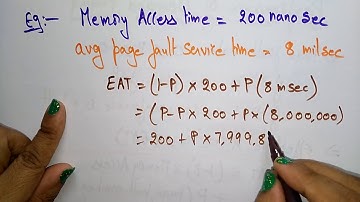 Eg:- Memory Access time = 200 nano sec
avg page fault service time = 8 milsec
EAT = (1-P) x 200 + P (8 msec)
= (P-P x 200 + P x (8,000,000)
= 200 + P x 7,999,8